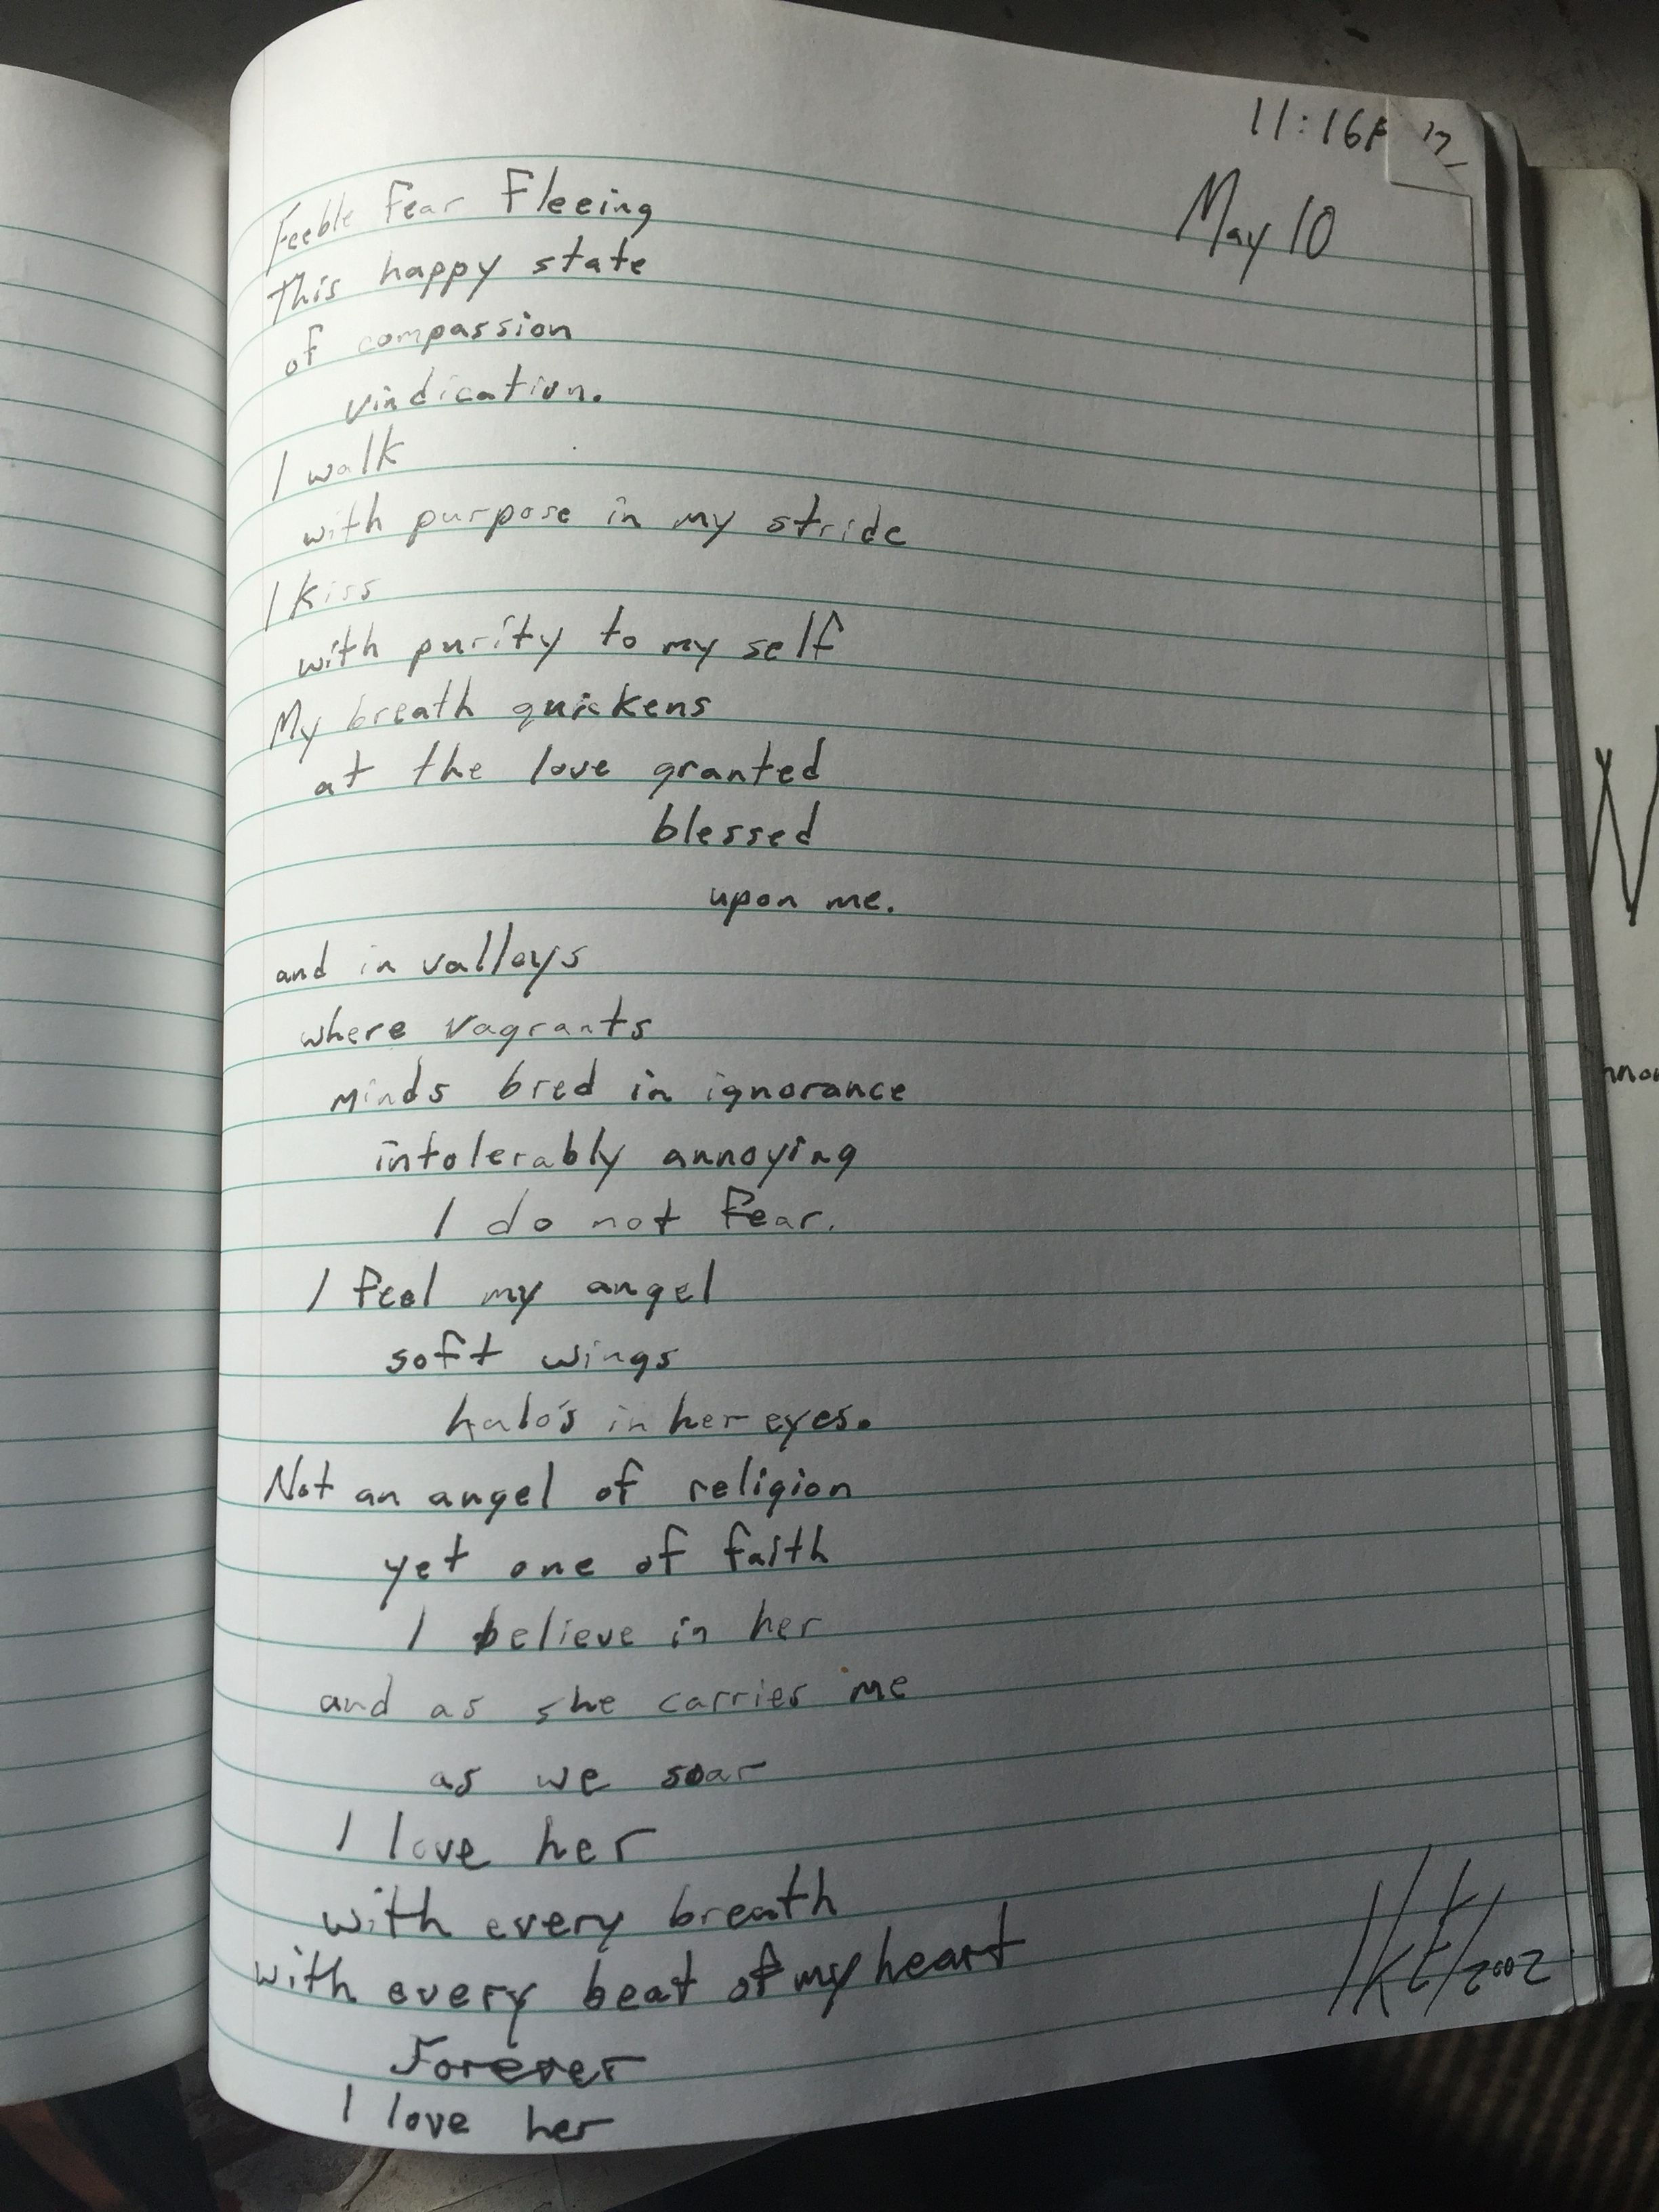 11:16P
May 10
Feeble Fear Fleeing
This happy state
of compassion
vindication.
I walk
with purpose in my stride
I kiss
with purity to my self
My breath quickens
at the love granted
blessed
upon me.
and in valleys
where vagrants
minds bred in ignorance
intolerably annoying
I do not fear.
I feel my angel
soft wings
halo's in her eyes.
Not an angel of religion
yet one of faith
I believe in her
and as she carries me
as we soar
I love her
with every breath
with every beat of my heart
Forever
I love her
2002